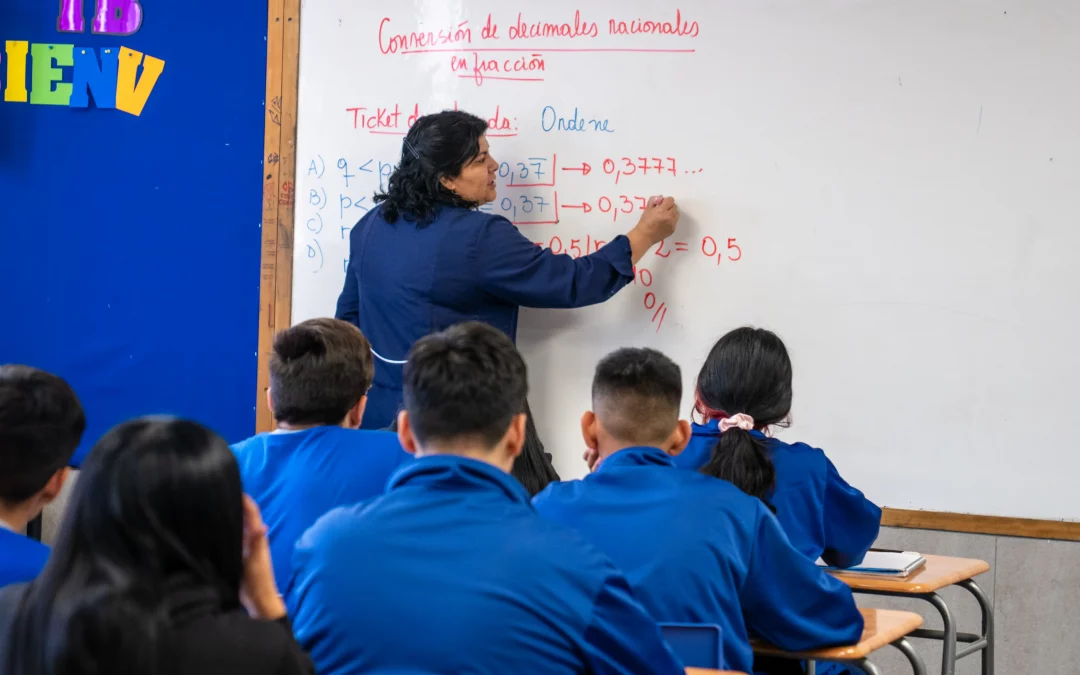 IB
IENV
Conversión de decimales racionales
en fracción
Ticket da: Ordene
A) q < p 0,37̅ → 0,3777...
B) p < = 0,37 → 0,37
C) r = 0,5 2 = 0,5
D) 10
0//